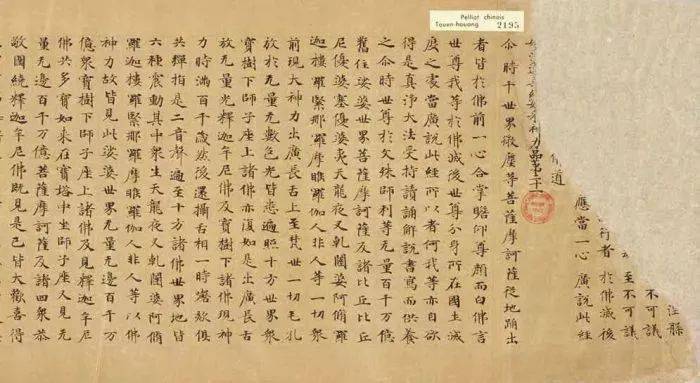 Pelliot chinois
Touen-houang
2195
不可議
至不可議
行者 於佛滅後
應當一心 廣說此經
佛道
神力品第二十一
尒時千世界微塵等菩薩摩訶薩從地踊出
者皆於佛前一心合掌瞻仰尊顏而白佛言
世尊我等於佛滅後世尊分身所在國土滅
度之處當廣說此經所以者何我等亦自欲
得是真淨大法受持讀誦解說書寫而供養
之尒時世尊於文殊師利等无量百千万億
舊住娑婆世界菩薩摩訶薩及諸比丘比丘
尼優婆塞優婆夷天龍夜叉乹闥婆阿脩羅
迦樓羅緊那羅摩睺羅伽人非人等一切衆
前現大神力出廣長舌上至梵世一切毛孔
放於无量无數色光皆悉遍照十方世界衆
寶樹下師子座上諸佛亦復如是出廣長舌
放无量光釋迦牟尼佛及寶樹下諸佛現神
力時滿百千歲然後還攝舌相一時謦欬俱
共彈指是二音聲遍至十方諸佛世界地皆
六種震動其中衆生天龍夜叉乹闥婆阿脩
羅迦樓羅緊那羅摩睺羅伽人非人等以佛
神力故皆見此娑婆世界无量无邊百千万
億衆寶樹下師子座上諸佛及見釋迦牟尼
佛共多寶如来在寶塔中坐師子座又見无
量无邊百千万億菩薩摩訶薩及諸四衆恭
敬圍繞釋迦牟尼佛既見是已皆大歡喜得